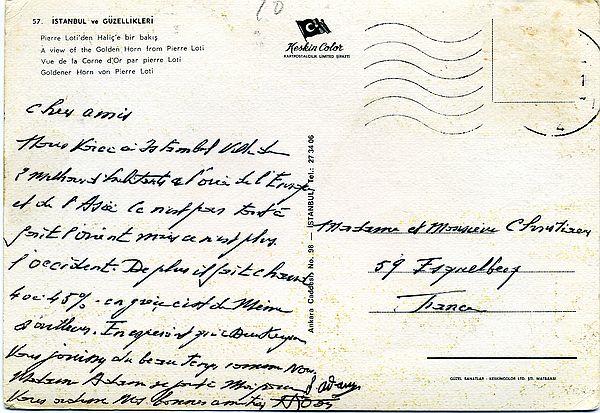 57. İSTANBUL ve GÜZELLİKLERİ
Pierre Loti'den Haliç'e bir bakış
A view of the Golden Horn from Pierre Loti
Vue de la Corne d'Or par pierre Loti
Goldener Horn von Pierre Loti
Keskin Color
KARTPOSTALCILIK LIMITED ŞİRKETİ
Chers amis
Nous voici à Istambul Ville de
2 millions d'habitants à l'orée de l'Europe
et de l'Asie ce n'est pas tout à
fait l'orient mais ce n'est plus
l'occident. De plus il fait chaud
40 à 45% - en grèce c'est de même
d'ailleurs. En espérant qu'à Dunkerque
Vous jouissez du beau temps comme nous
Madame Adam se joint à moi pour
Vous adresser nos bonnes amitiés
Ankara Caddesi No. 98 — İSTANBUL Tel.: 27 34 06
Madame et Monsieur
59 Esquelbecq
France
GÜZEL SANATLAR - KESKİNCOLOR LTD. ŞTİ. MATBAASI